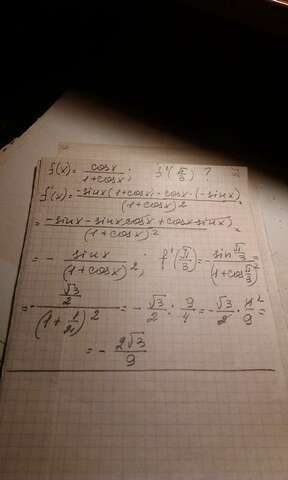 f(x) = cosx / (1+cosx); f'(π/3) ?
f'(x) = (-sinx(1+cosx) - cosx·(-sinx)) / (1+cosx)² =
= (-sinx - sinx cosx + cosx sinx) / (1+cosx)² =
= - sinx / (1+cosx)²; f'(π/3) = - sin π/3 / (1+cos π/3)² =
= - (√3/2) / (1+1/2)² = - √3/2 · 9/4 = - √3/2 · 4²/9 =
= - 2√3/9